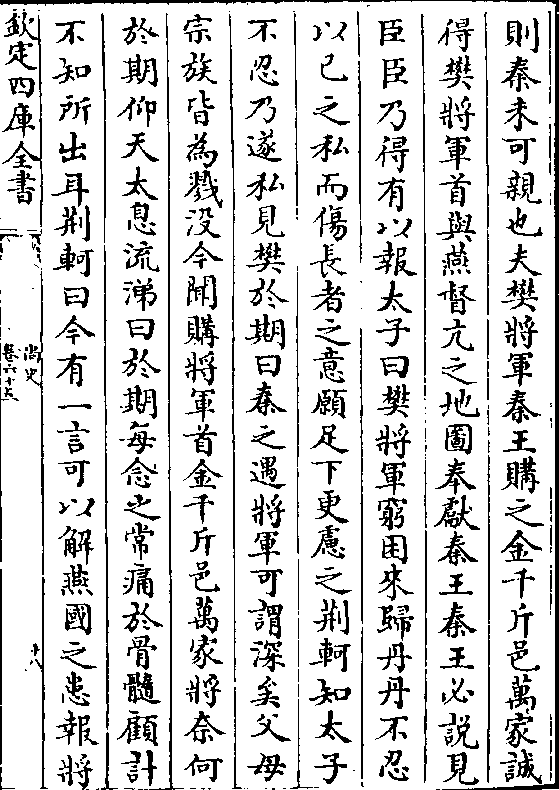 則秦未可親也夫樊將軍秦王購之金千斤邑萬家誠
得樊將軍首與燕督亢之地圖奉獻秦王秦王必說見
臣臣乃得有以報太子曰樊將軍窮困來歸丹丹不忍
以已之私而傷長者之意願足下更慮之荆軻知太子
不忍乃遂私見樊於期曰秦之遇將軍可謂深矣父母
宗族皆為戮没今聞購將軍首金千斤邑萬家將奈何
於期仰天太息流涕曰於期每念之常痛於骨髓顧計
不知所出耳荆軻曰今有一言可以解燕國之患報將
欽定四庫全書
尚史
卷六十五
十八